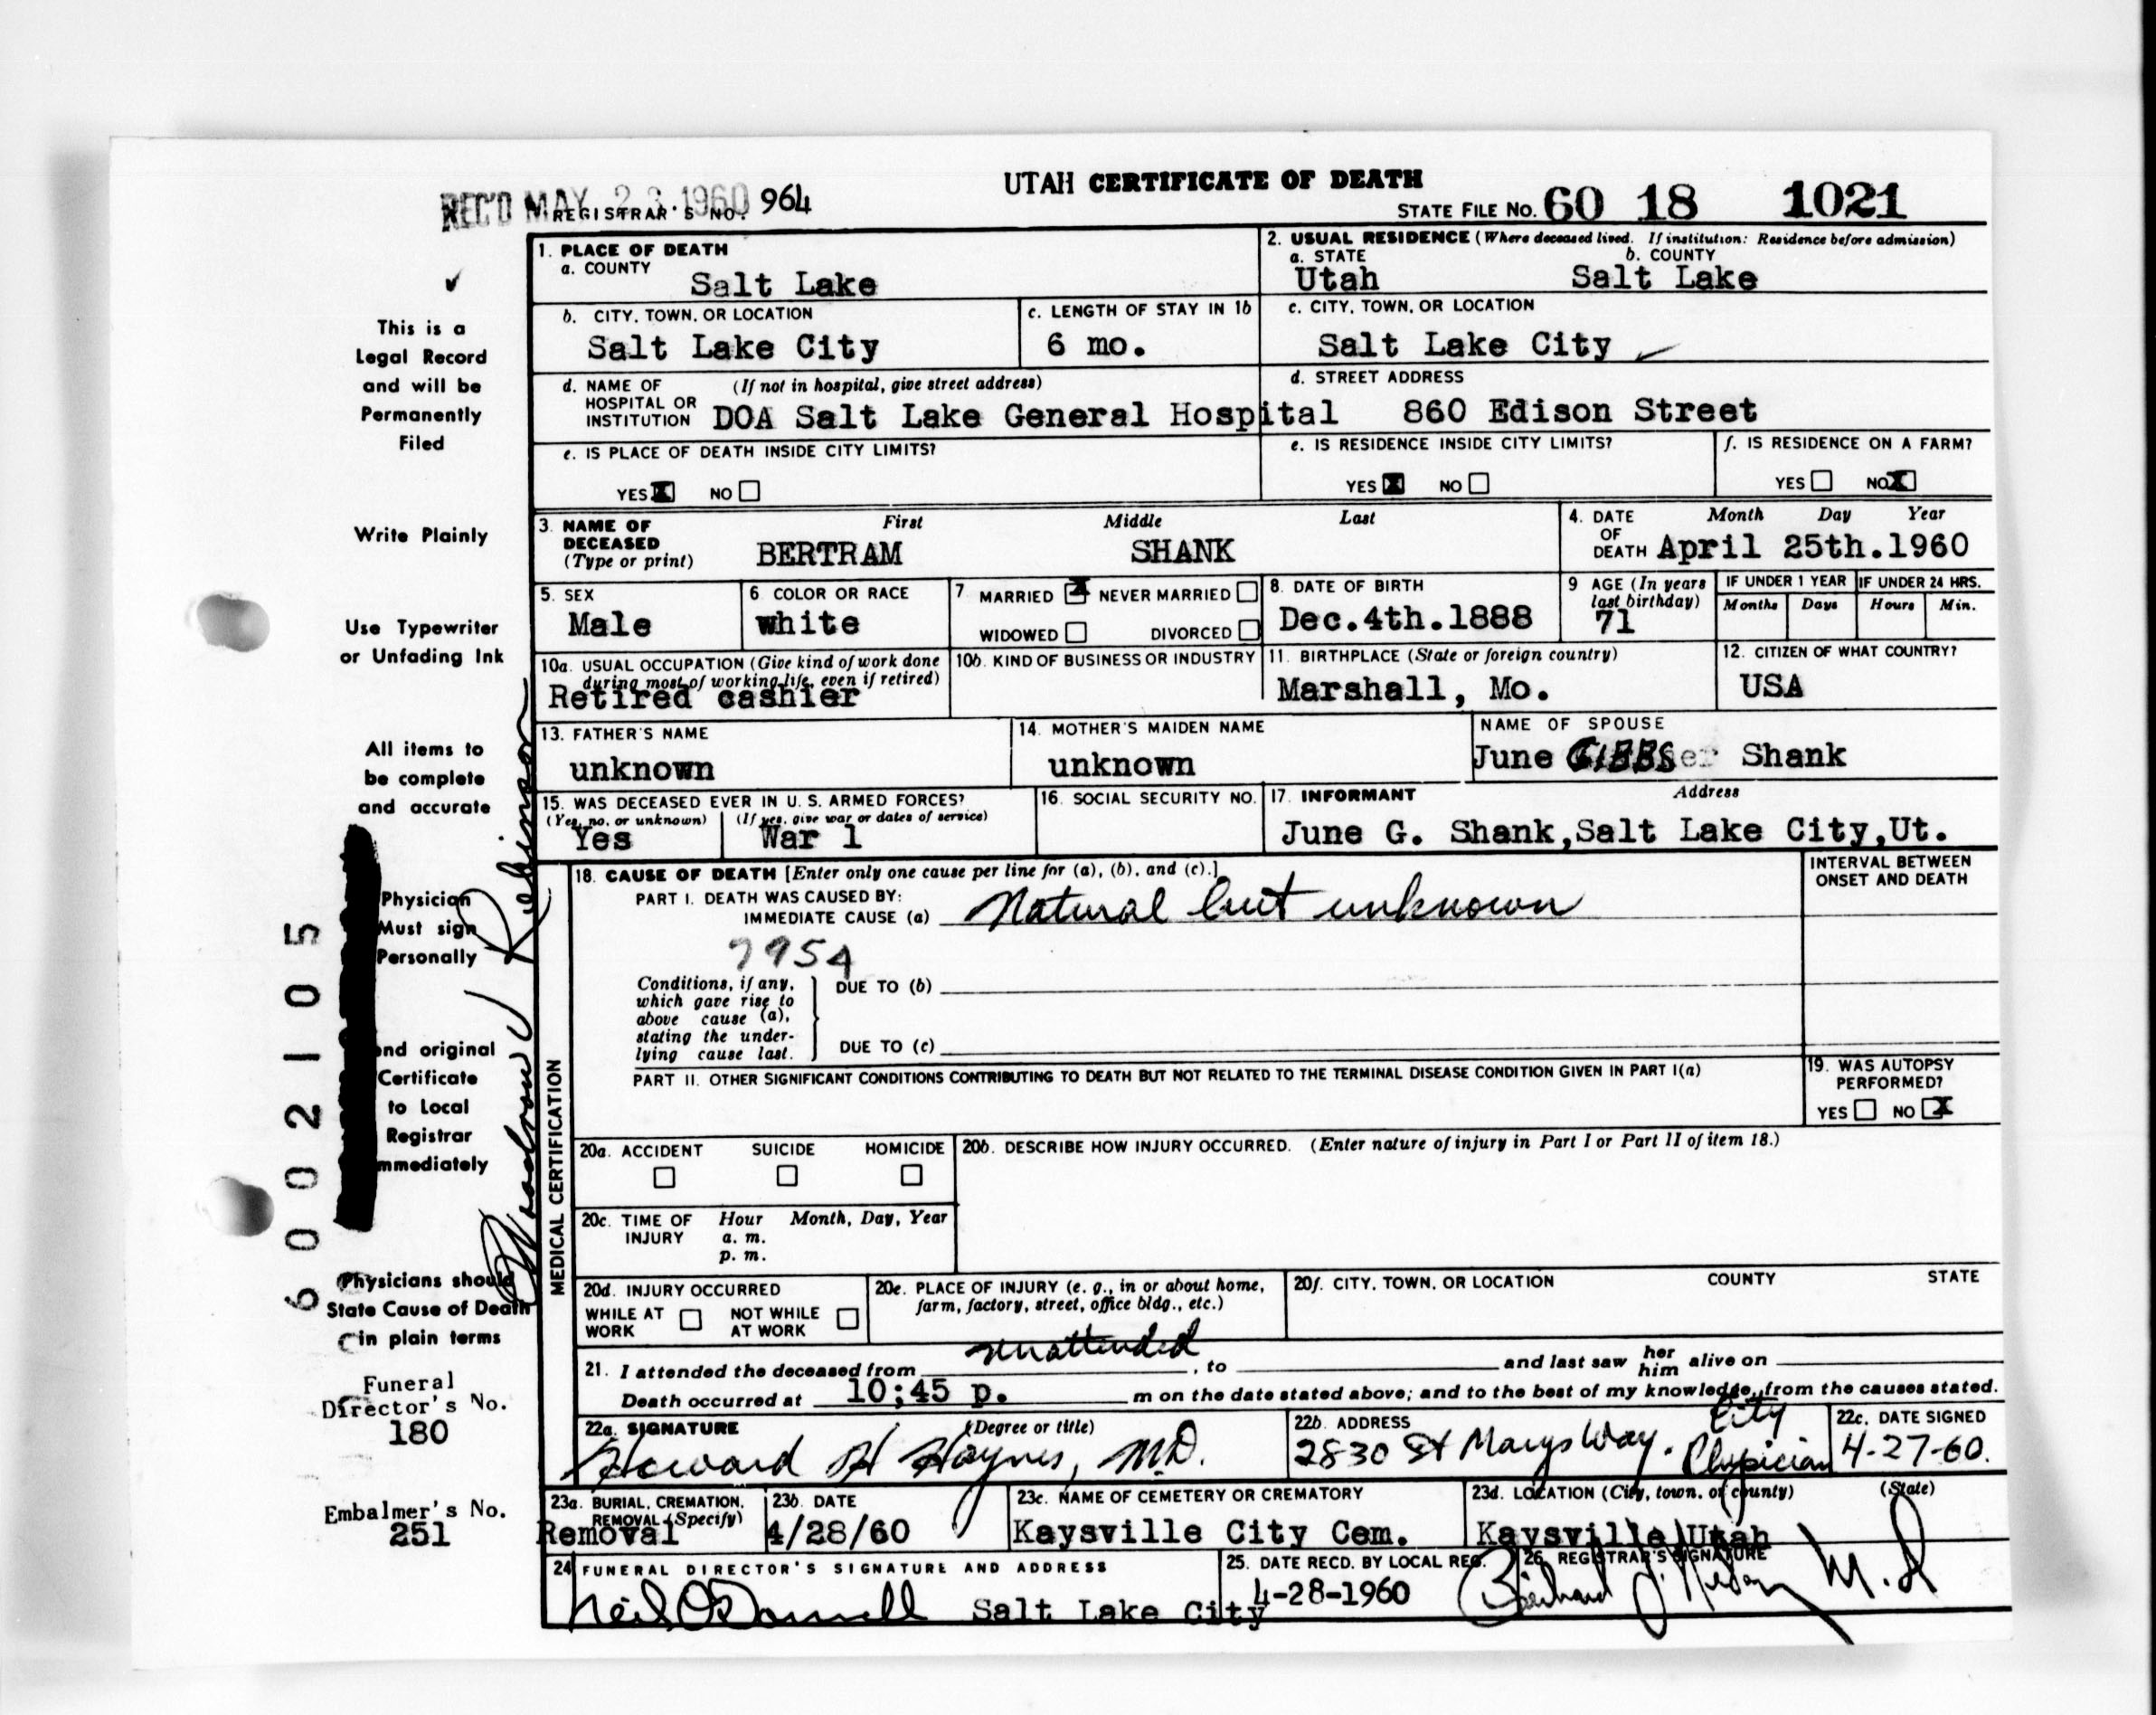 UTAH CERTIFICATE OF DEATH
REC'D MAY 23 1960
REGISTRAR'S NO. 964
STATE FILE NO. 60 18 1021
1. PLACE OF DEATH
a. COUNTY
Salt Lake
2. USUAL RESIDENCE (Where deceased lived. If institution: Residence before admission)
a. STATE b. COUNTY
Utah Salt Lake
b. CITY, TOWN, OR LOCATION
Salt Lake City
c. LENGTH OF STAY IN 1b
6 mo.
c. CITY, TOWN, OR LOCATION
Salt Lake City
d. NAME OF HOSPITAL OR INSTITUTION (If not in hospital, give street address)
DOA Salt Lake General Hospital
d. STREET ADDRESS
860 Edison Street
e. IS PLACE OF DEATH INSIDE CITY LIMITS?
YES X NO
e. IS RESIDENCE INSIDE CITY LIMITS?
YES X NO
f. IS RESIDENCE ON A FARM?
YES NO X
3. NAME OF DECEASED (Type or print)
First Middle Last
BERTRAM SHANK
4. DATE OF DEATH Month Day Year
April 25th.1960
5. SEX
Male
6. COLOR OR RACE
white
7 MARRIED X NEVER MARRIED
WIDOWED DIVORCED
8. DATE OF BIRTH
Dec.4th.1888
9 AGE (In years last birthday)
71
IF UNDER 1 YEAR IF UNDER 24 HRS.
Months Days Hours Min.
10a. USUAL OCCUPATION (Give kind of work done during most of working life, even if retired)
Retired cashier
10b. KIND OF BUSINESS OR INDUSTRY
11. BIRTHPLACE (State or foreign country)
Marshall, Mo.
12. CITIZEN OF WHAT COUNTRY?
USA
13. FATHER'S NAME
unknown
14. MOTHER'S MAIDEN NAME
unknown
NAME OF SPOUSE
June GIBBS Shank
15. WAS DECEASED EVER IN U. S. ARMED FORCES?
(Yes, no, or unknown) (If yes, give war or dates of service)
Yes War 1
16. SOCIAL SECURITY NO.
17. INFORMANT Address
June G. Shank,Salt Lake City,Ut.
MEDICAL CERTIFICATION
18. CAUSE OF DEATH [Enter only one cause per line for (a), (b), and (c).]
INTERVAL BETWEEN ONSET AND DEATH
PART I. DEATH WAS CAUSED BY:
IMMEDIATE CAUSE (a) Natural but unknown
7954
Conditions, if any, which gave rise to above cause (a), stating the underlying cause last.
DUE TO (b)
DUE TO (c)
PART II. OTHER SIGNIFICANT CONDITIONS CONTRIBUTING TO DEATH BUT NOT RELATED TO THE TERMINAL DISEASE CONDITION GIVEN IN PART I(a)
19. WAS AUTOPSY PERFORMED?
YES NO X
20a. ACCIDENT SUICIDE HOMICIDE
20b. DESCRIBE HOW INJURY OCCURRED. (Enter nature of injury in Part I or Part II of item 18.)
20c. TIME OF INJURY Hour Month, Day, Year
a. m.
p. m.
20d. INJURY OCCURRED
WHILE AT WORK NOT WHILE AT WORK
20e. PLACE OF INJURY (e. g., in or about home, farm, factory, street, office bldg., etc.)
20f. CITY, TOWN, OR LOCATION COUNTY STATE
21. I attended the deceased from unattended, to and last saw her him alive on
Death occurred at 10;45 p. m on the date stated above; and to the best of my knowledge, from the causes stated.
22a. SIGNATURE (Degree or title)
Howard H Haynes, M.D.
22b. ADDRESS
2830 St Marys Way. City Physician
22c. DATE SIGNED
4-27-60.
23a. BURIAL, CREMATION, REMOVAL (Specify)
Removal
23b. DATE
4/28/60
23c. NAME OF CEMETERY OR CREMATORY
Kaysville City Cem.
23d. LOCATION (City, town, or county) (State)
Kaysville,Utah
24 FUNERAL DIRECTOR'S SIGNATURE AND ADDRESS
Neil O'Donnell Salt Lake City
25. DATE RECD. BY LOCAL REG.
4-28-1960
26. REGISTRAR'S SIGNATURE
M.D.
This is a
Legal Record
and will be
Permanently
Filed
Write Plainly
Use Typewriter
or Unfading Ink
All items to
be complete
and accurate
Physician
Must sign
Personally
end original
Certificate
to Local
Registrar
mmediately
Physicians should
State Cause of Death
in plain terms
Funeral
Director's No.
180
Embalmer's No.
251
6002105
Robinson